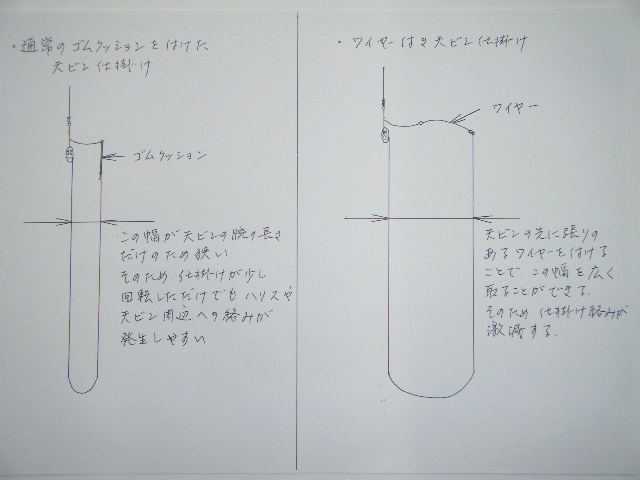 ・通常のゴムクッションをつけた
天ビン仕掛け
ゴムクッション
この幅が天ビンの腕の長さ
だけのため狭い
そのため仕掛けが少し
回転しただけでもハリスや
天ビン周辺への絡みが
発生しやすい
・ワイヤー付き天ビン仕掛け
ワイヤー
天ビンの先に張りの
あるワイヤーを付ける
ことで、この幅を広く
取ることができる。
そのため仕掛け絡みが
激減する。